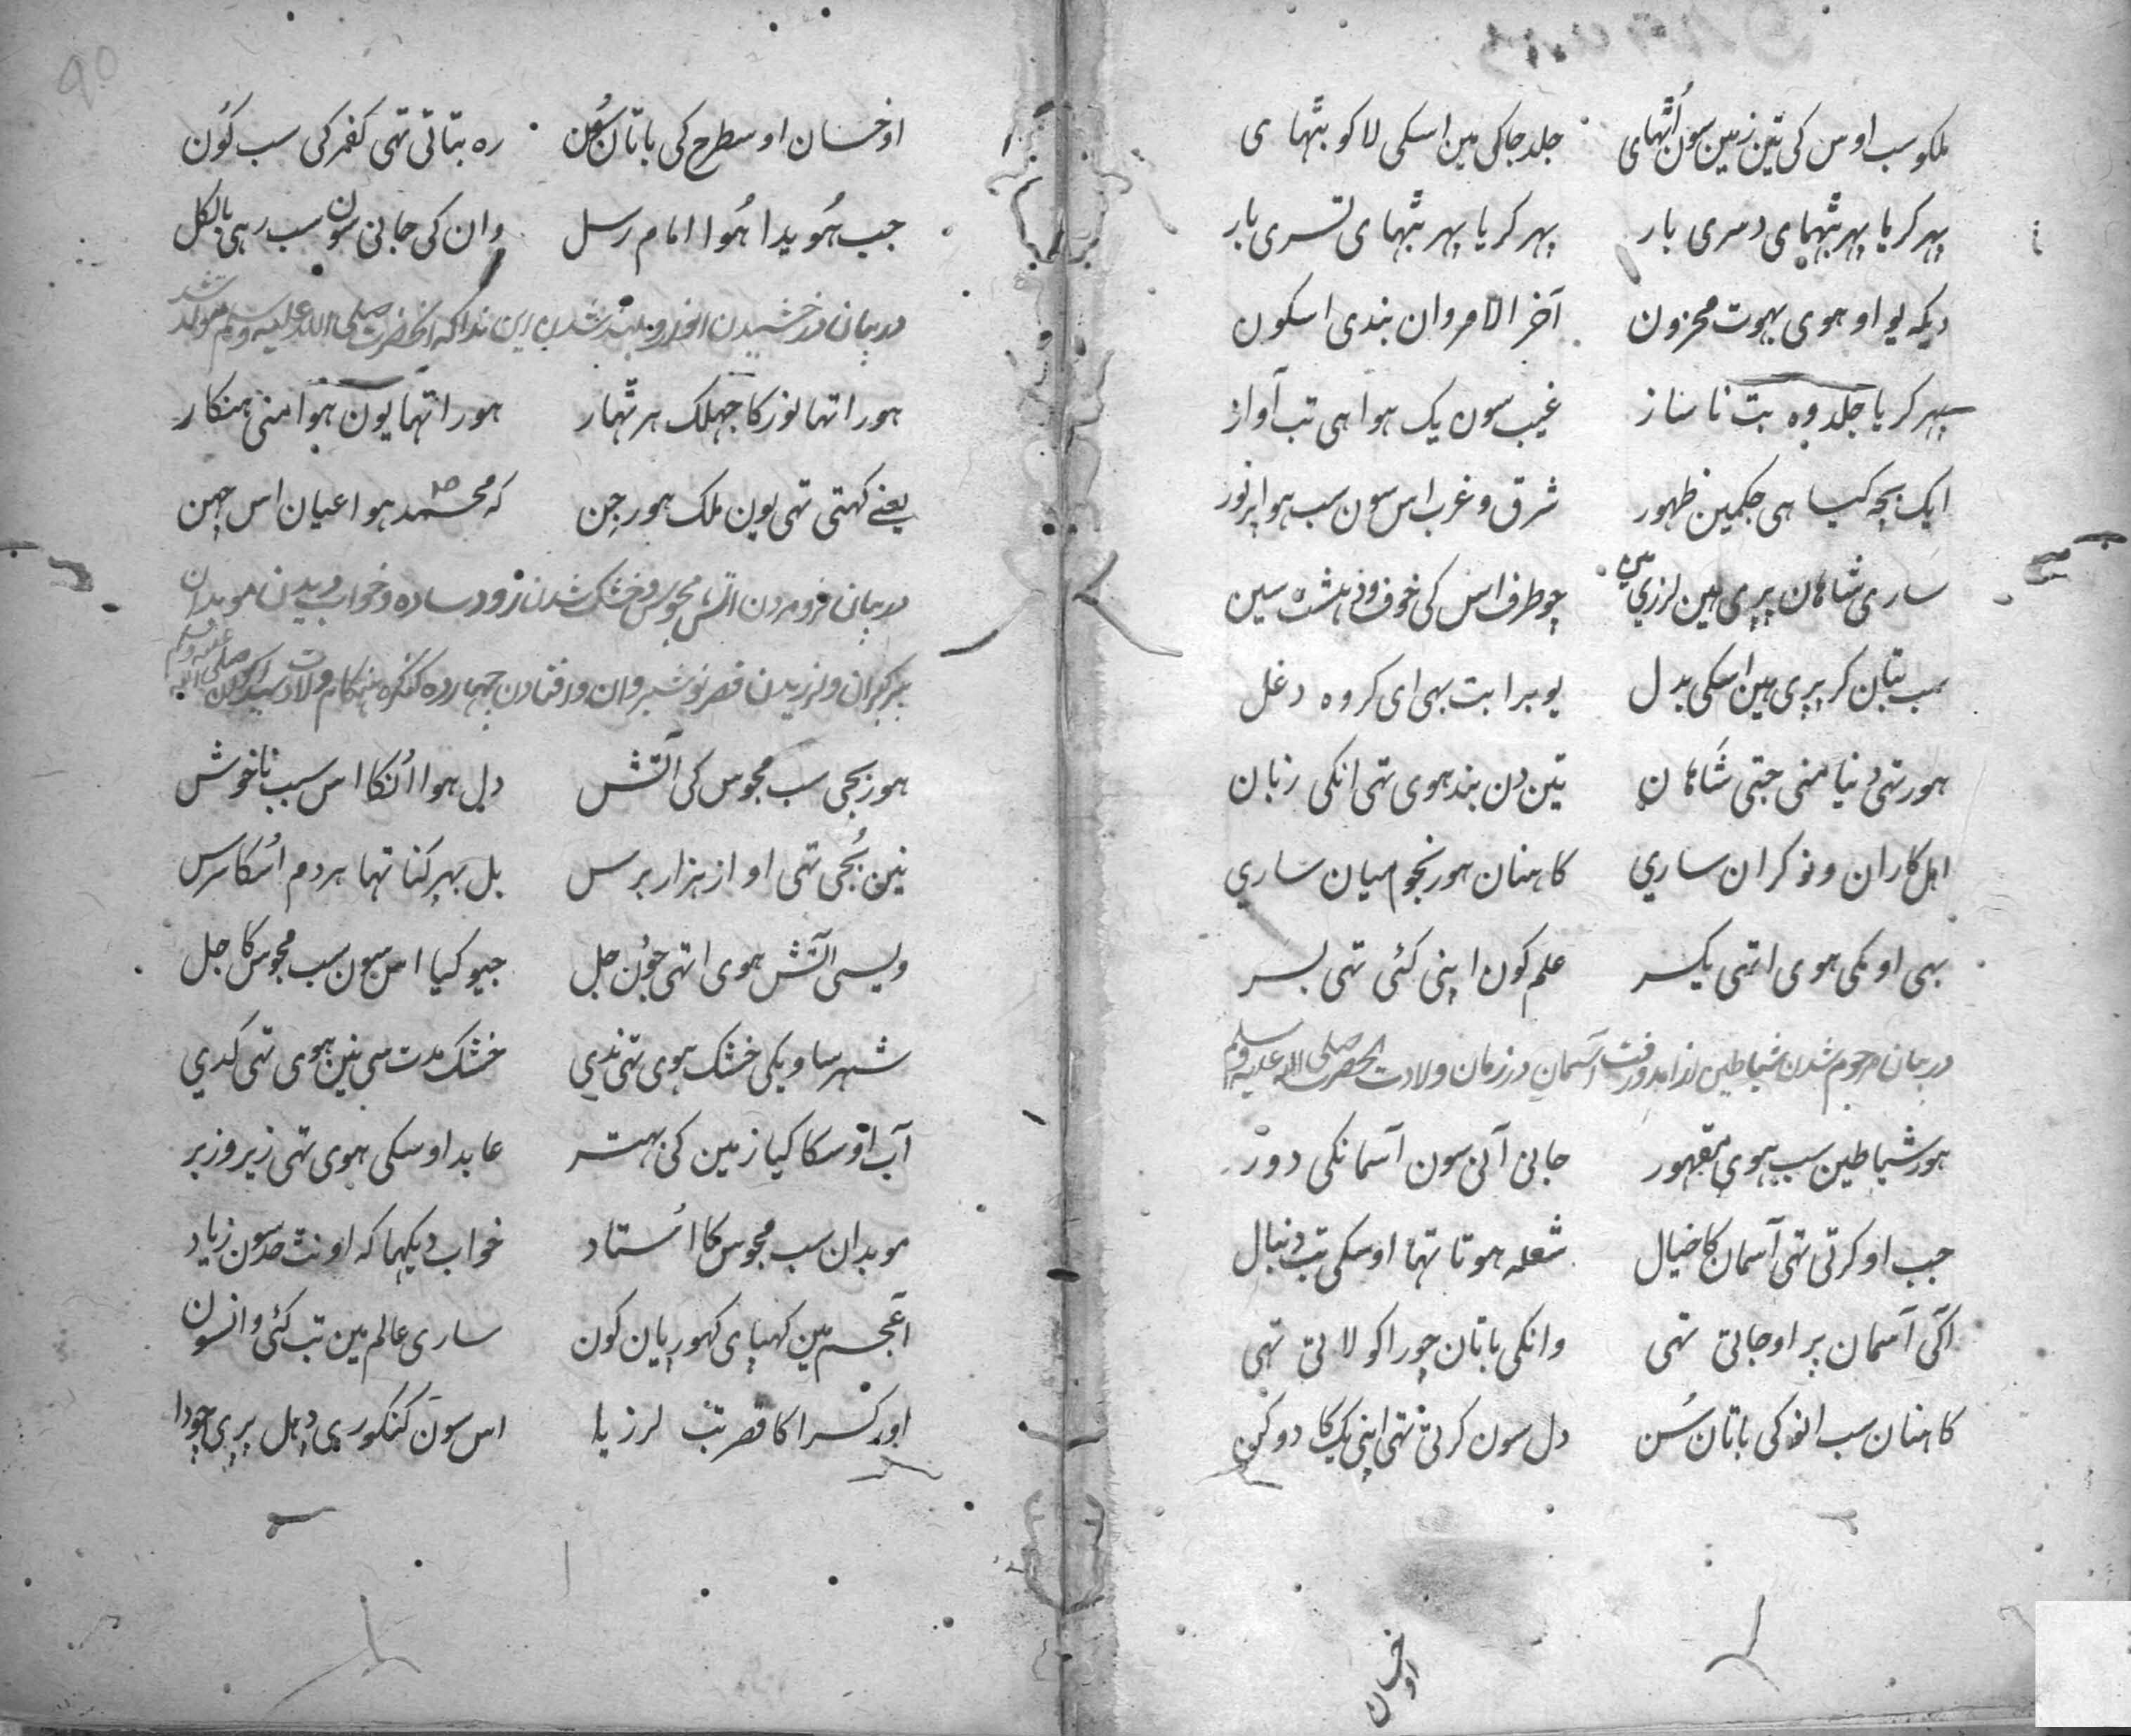 ملکو سب اوس کی تین زمین سون اُتہای جلد جاکی مین اسکی لاکو بتہا ی
پہر کر یا پہر بتہای دسری بار پہر کر یا پہر بتہای تسری بار
دیکہ یو او ہوی بہوت محزون آخر الامر وان بندی اسکون
پہر کر یا جلد وہ بت نا ساز غیب سون یک ہوا ہی تب آواز
ایک بچہ کیا ہی جکمین ظہور شرق و غرب اس سون سب ہوا پر نور
ساری شاہان پری ہین لرزی مین چوطرف اس کی خوف و دہشت سین
سب بتان کر پری ہین اسکی بدل یو برا بت بہی ای کروہ دغل
ہور تہی دنیا منی جتی شاہان تین دن بند ہوی تہی انکی زبان
اہل کاران و نوکران ساری کاہنان ہور نجومیان ساری
بہی او مکی ہوی اتہی یکسر علم کون اپنی کئی تہی بسر
در بیان مرجوم شدن شیاطین از امد و رفت آسمان در زمان ولادت آنحضرت صلی الله علیه وسلم
ہور شیاطین سب ہوی مقہور جانی آنی سون آسمانکی دور
جب او کرتی تہی آسمان کا خیال شعلہ ہوتا تہا اوسکی تب دنبال
اکی آسمان پر او جاتی تہی وانکی باتان چورا کو لاتی تہی
کاہنان سب انو کی باتان سُن دل سون کرتی تہی اپنی یک کا دو کن
اوخسان
۹۰
اوخسان اوسطرح کی باتان سُن رہ بتاتی تہی کفر کی سب کوُن
جب ہُویدا ہُوا امام رسل وان کی جانی سون سب رہی بالکل
در بیان درخشیدن انوار و بلند شدن این ندا کہ آنحضرت صلی الله علیه وسلم مولد شد
ہور اتہا نور کا جہلک ہر تہار ہور اتہا یون ہوا منی ہنکار
یعنے کہتی تہی یون ملک ہور جن کہ محمد ہوا عیان اس چہن
در بیان فرو مردن اتش مجوس و خشک شدن رود ساوه و خواب دیدن موبدان
و لرزیدن قصر نوشیروان و افتادن چہارده کنکره ہنکام ولادت صلی الله علیه وسلم
ہور بجی سب مجوس کی آتش دل ہوا اُنکا اس سبب ناخوش
نین بُجی تہی او از ہزار برس بل بہرکنا تہا ہر دم اُسکا سرس
ویسی آتش ہوی اتہی جوُن جل جیو کیا اس سون سب مجوس کا جل
شہر ساویکی خشک ہوی تہی ندی خشک مدت سی نین ہوی تہی کدی
آب اوسکا کیا زمین کی بہتر عابد اوسکی ہوی تہی زیر و زبر
موبدان سب مجوس کا اُستاد خواب دیکہا کہ اونٹ حد سون زیاد
آ عجم مین کہیای کہوریان کون ساری عالم مین تب کئی وانسون
اور کسرا کا قصر تب لرزیا اس سون کنکوری دہل پری چودا